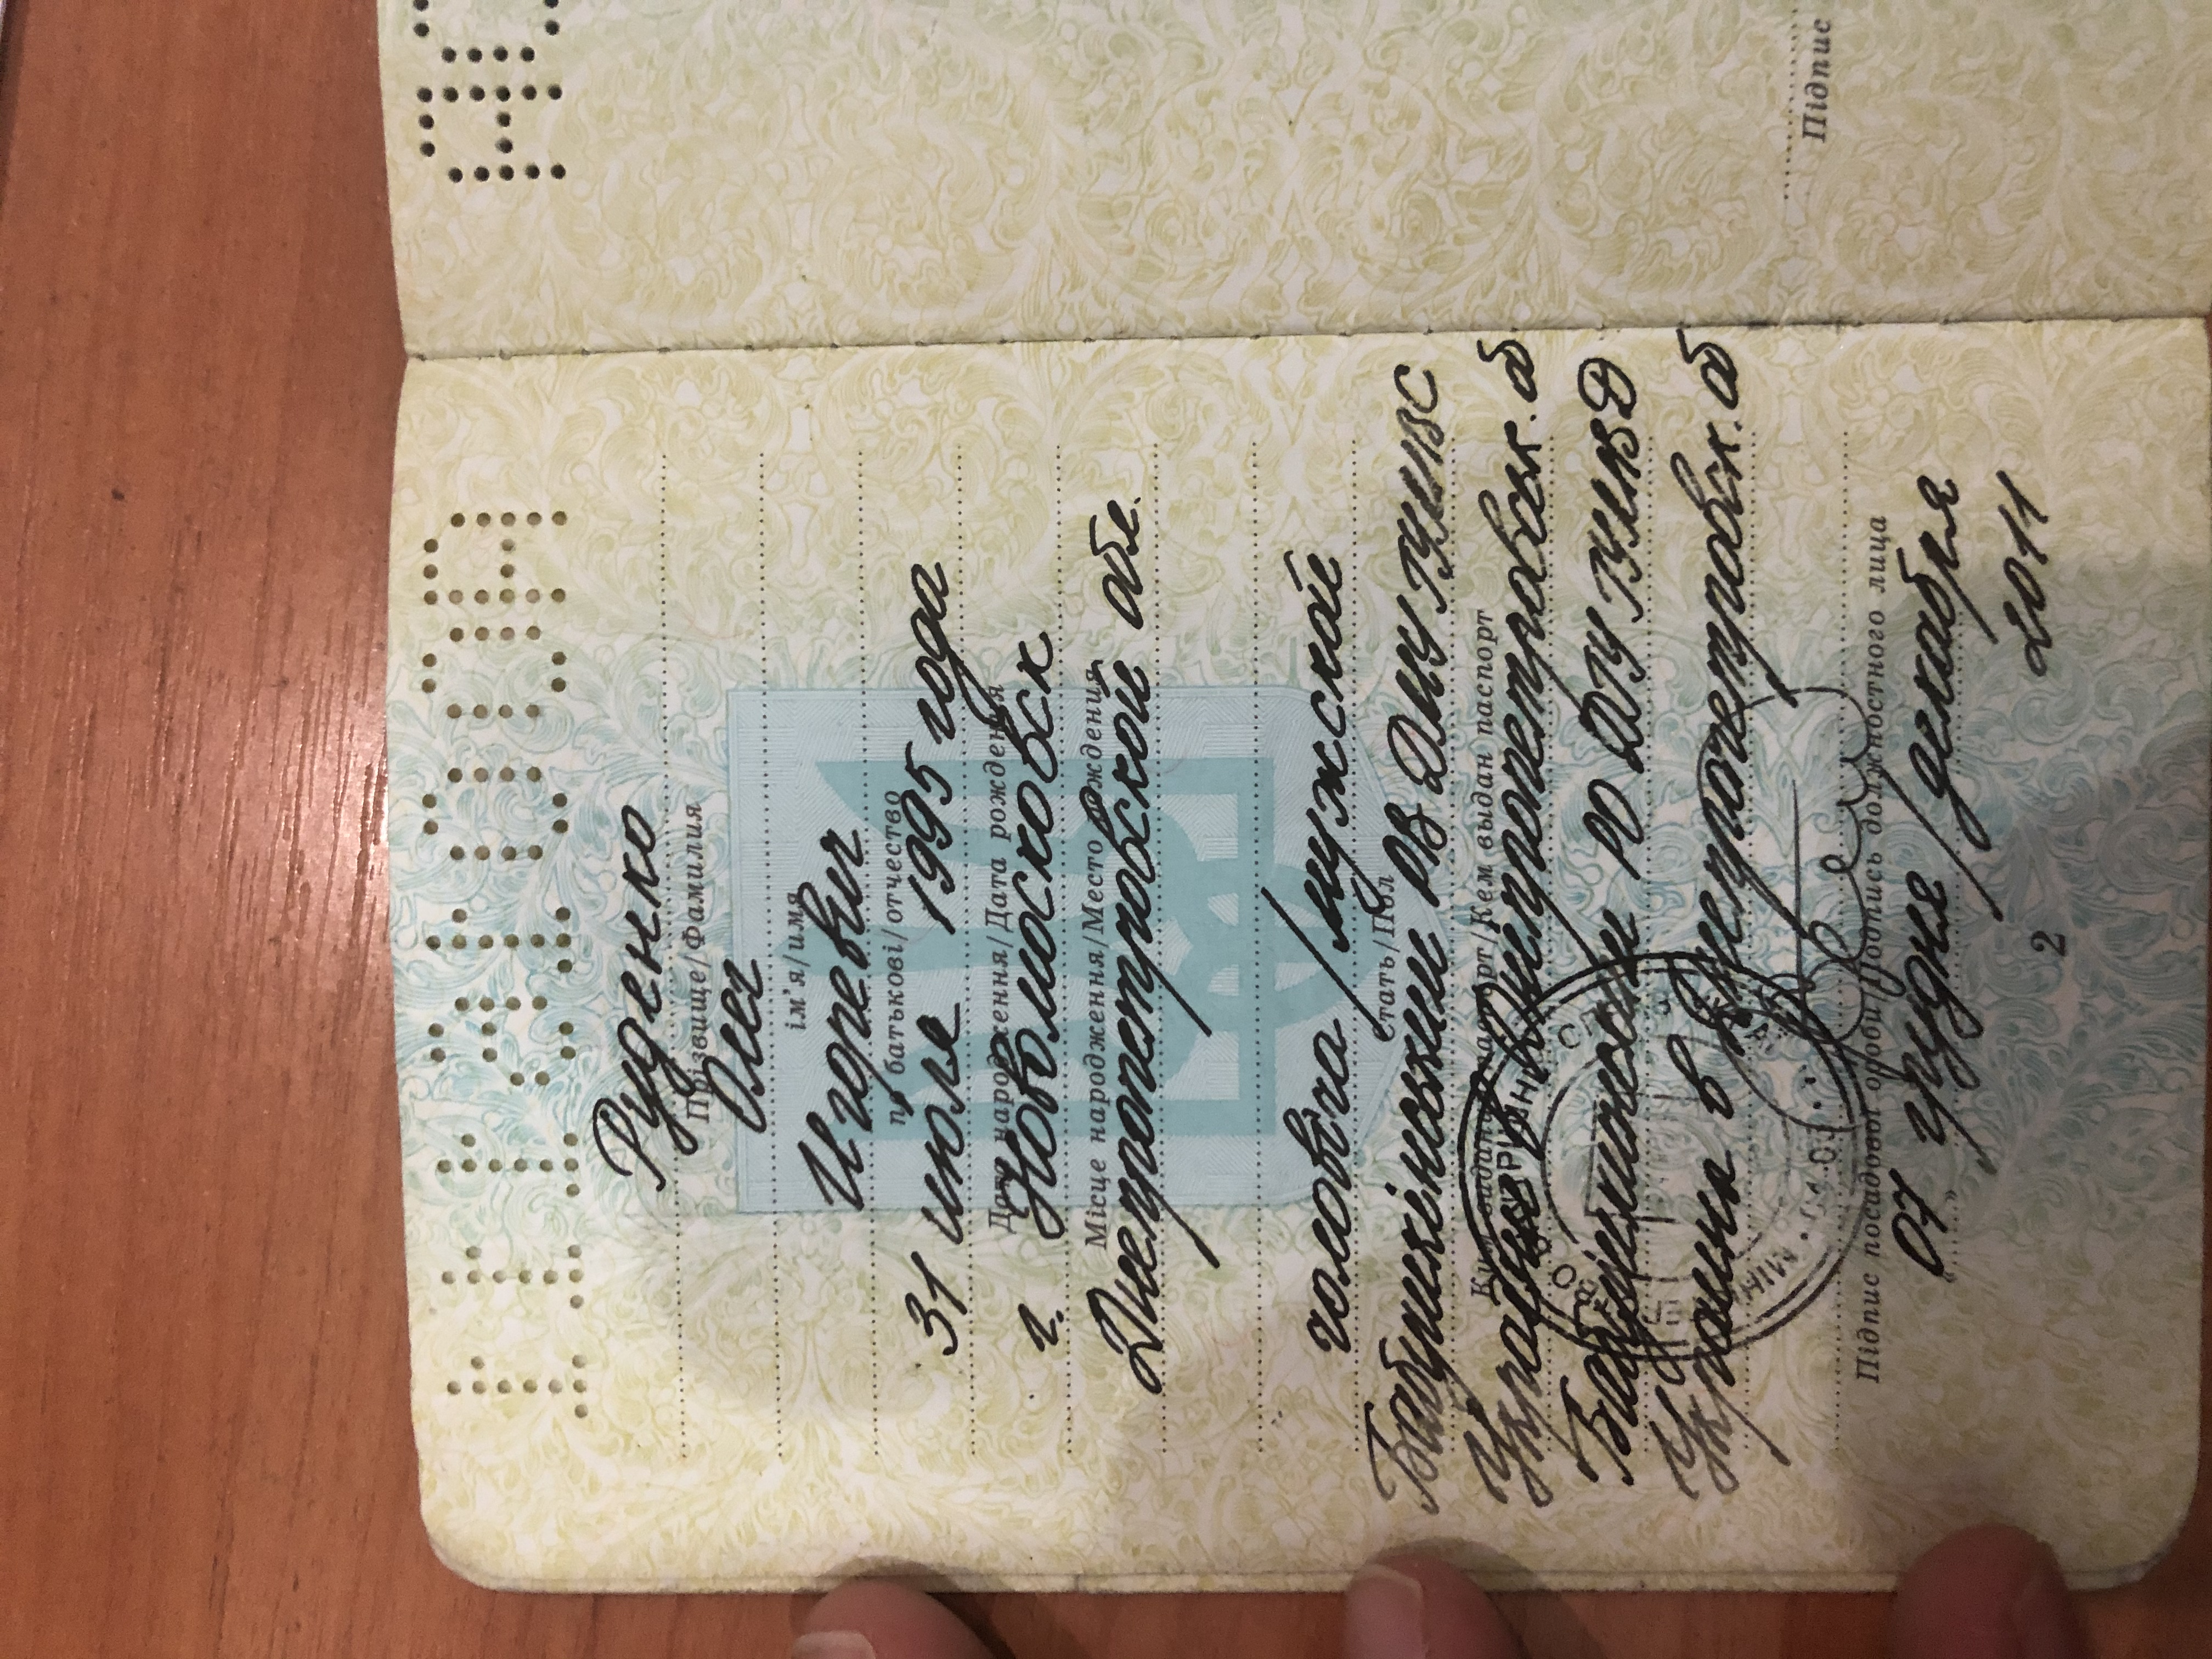 Руденко
Прізвище/Фамилия
Олег
ім'я/имя
Игоревич
по батькові/отчество
31 июля 1995 года
Дата народження/Дата рождения
г. Новомосковск
Місце народження/Место рождения
Днепропетровской обл.
чоловіча / мужской
Стать/Пол
Бабушкінським РВ ДМУ ГУМВС
Ким виданий паспорт/Кем выдан паспорт
України в Дніпропетровськ. об
Бабушкинским РО ДГУ ГУМВД
Украина в Днепропетровск. об
Підпис посадової особи/Подпись должностного лица
07 грудня / декабря
2011
2
Підпис